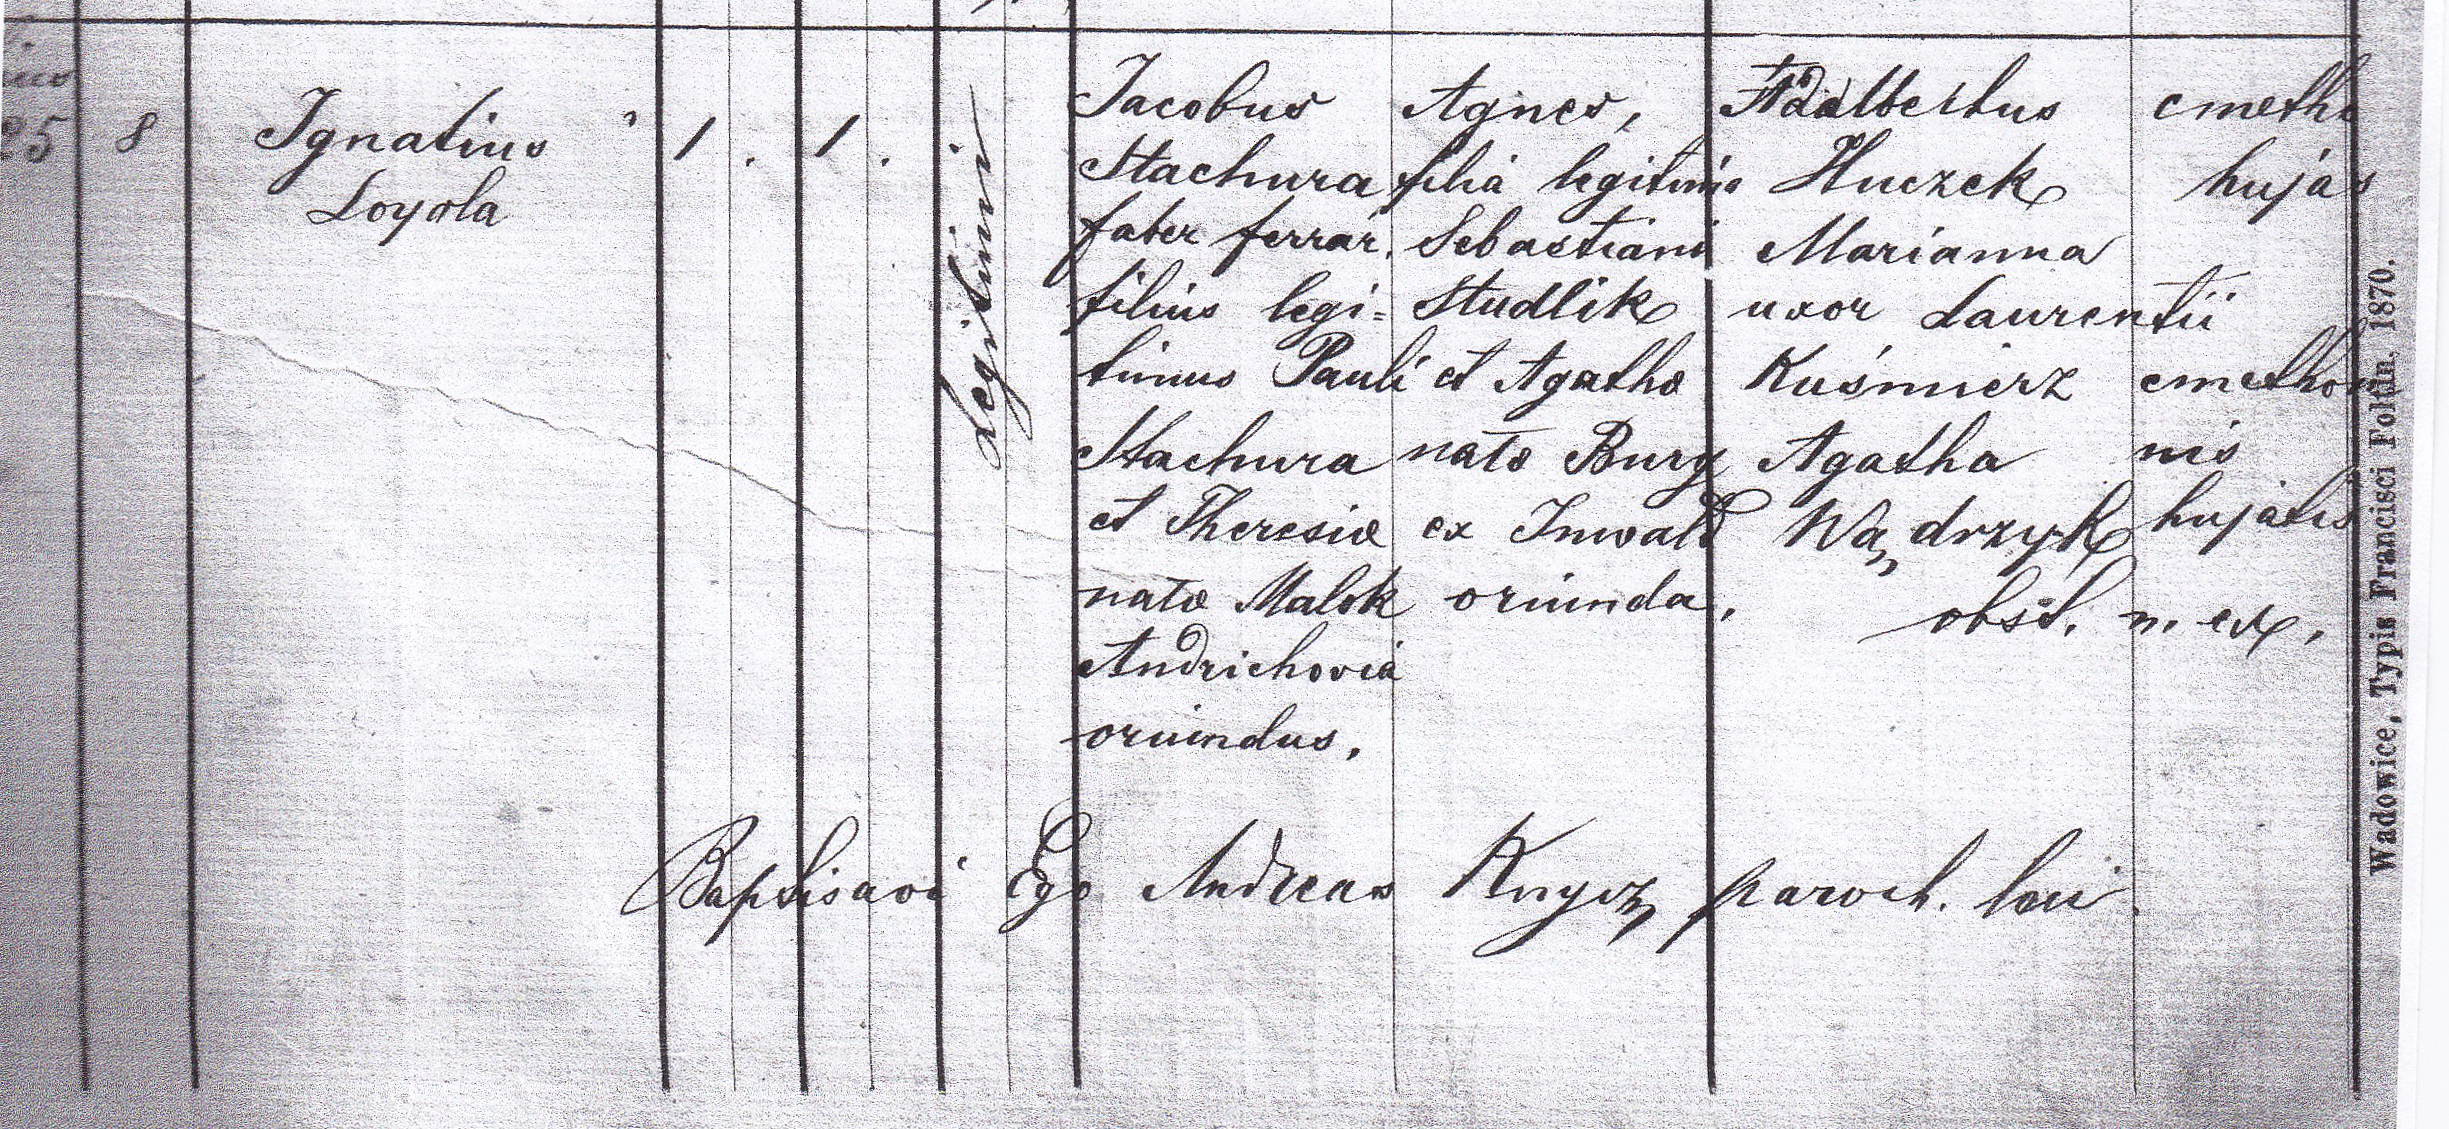 25 8
Ignatius
Loyola
1. 1.
Legitimi
Jacobus
Stachura
faber ferrar.
filius legi=
timus Pauli
Stachura
et Theresiæ
natæ Malek
Andrichoviá
oriundus.
Agnes,
filia legitima
Sebastiani
Studlik
et Agathæ
natæ Bury
ex Inwald
oriunda.
Adalbertus
Huczek
Marianna
uxor Laurentii
Kuśmierz
Agatha
Wądrzyk
obst. n. ex.
cmetho
hujás
cmetho
nis
hujatis
Baptisavi Ego Andreas Knycz paroch. loci.
Wadowice, Typis Francisci Foltin. 1870.